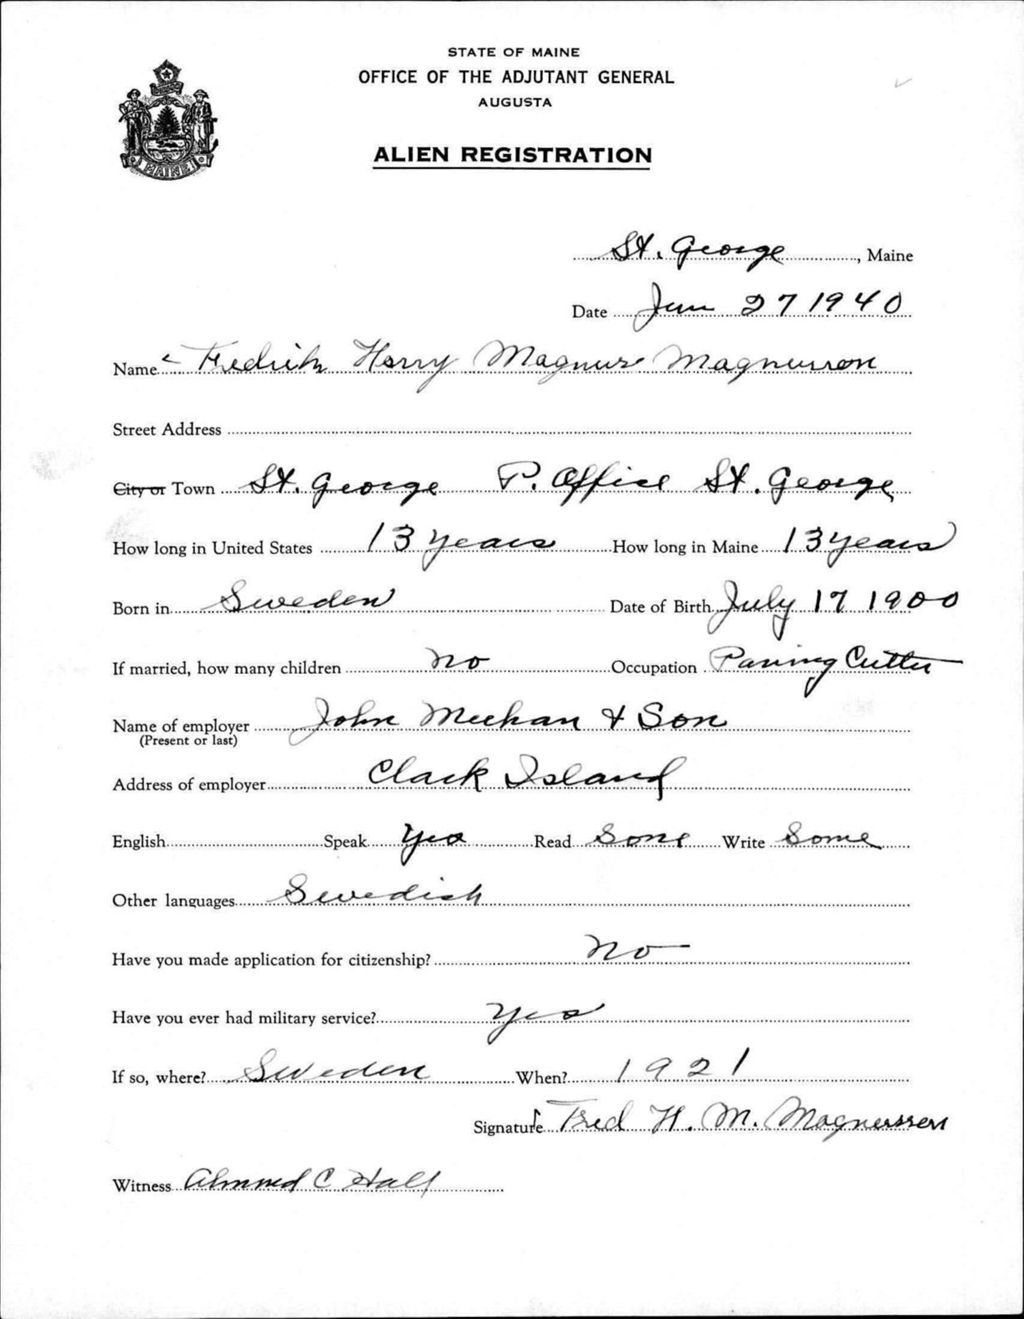 STATE OF MAINE
OFFICE OF THE ADJUTANT GENERAL
AUGUSTA
ALIEN REGISTRATION
MAINE
St. George, Maine
Date Jun 27 1940
Name Fredrick Harry Magnus Magnusson
Street Address
City or Town St. George P. Office St. George
How long in United States 13 years How long in Maine 13 years
Born in Sweden Date of Birth July 17 1900
If married, how many children no Occupation Paving Cutter
Name of employer John Meehan & Son
(Present or last)
Address of employer Clark Island
English Speak Yes Read Some Write Some
Other languages Swedish
Have you made application for citizenship? No
Have you ever had military service? Yes
If so, where? Sweden When? 1921
Signature Fred H. M. Magnussen
Witness C Hall